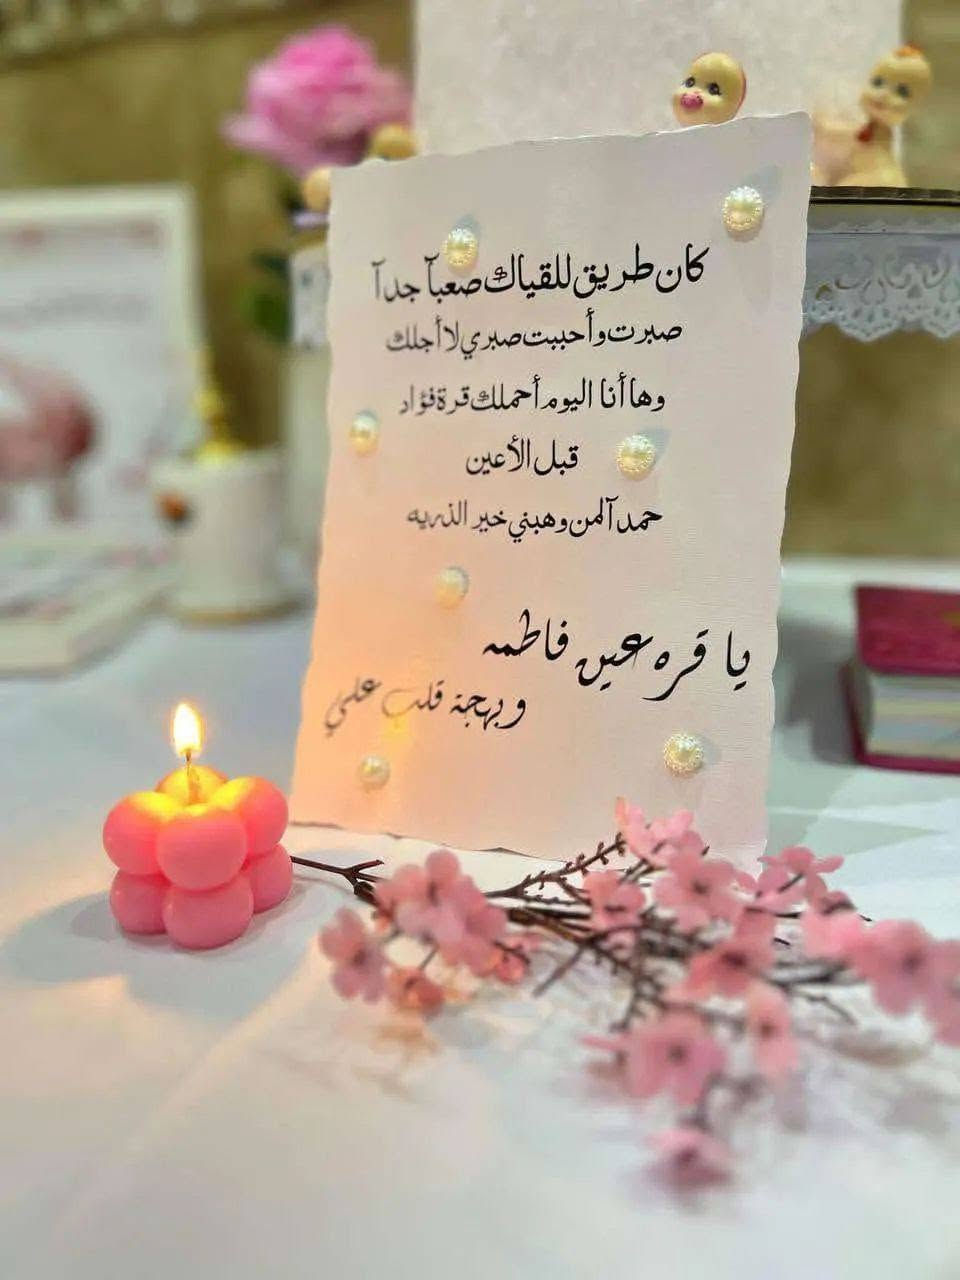 كان طريق للقياك صعبآ جدآ
صبرت وأحببت صبري لاأجلك
وها أنا اليوم أحملك قرة فؤاد
قبل الأعين
حمدآ لمن وهبني خير الذريه
يا قره عين فاطمه
وبهجة قلب علي